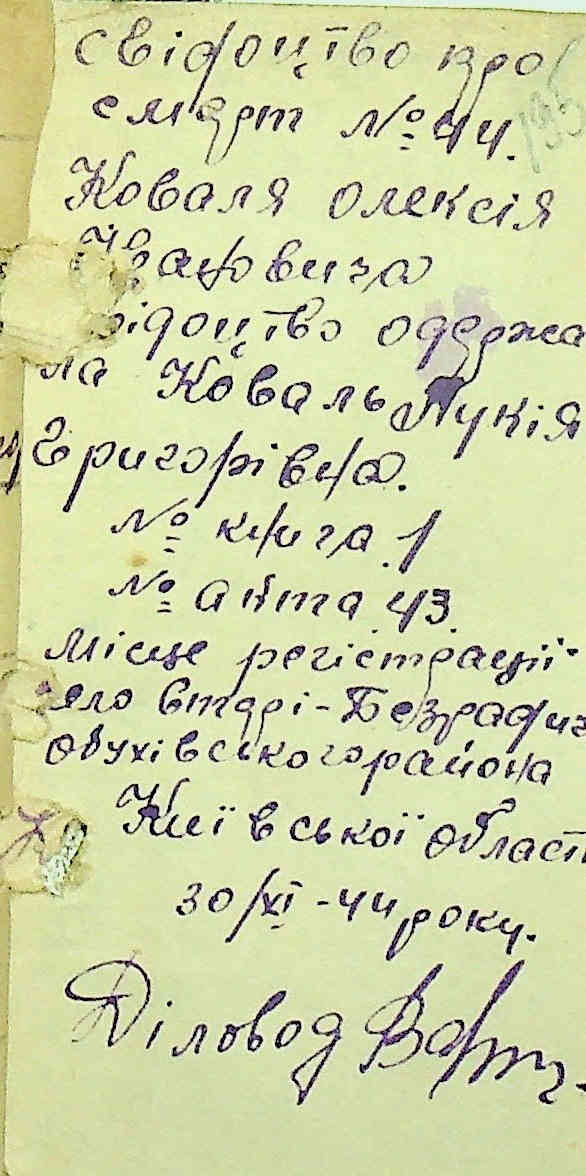 свідоцтво про
смерт № 44.
Коваля Олексія
Івановича
відоцтво одержа
ла Коваль Лукія
Григорівна.
№ книга 1
№ акта 43.
Місце регістрації
село втарі-Безрадич
Обухівського района
Київської област
30/XI-44 року.
Діловод